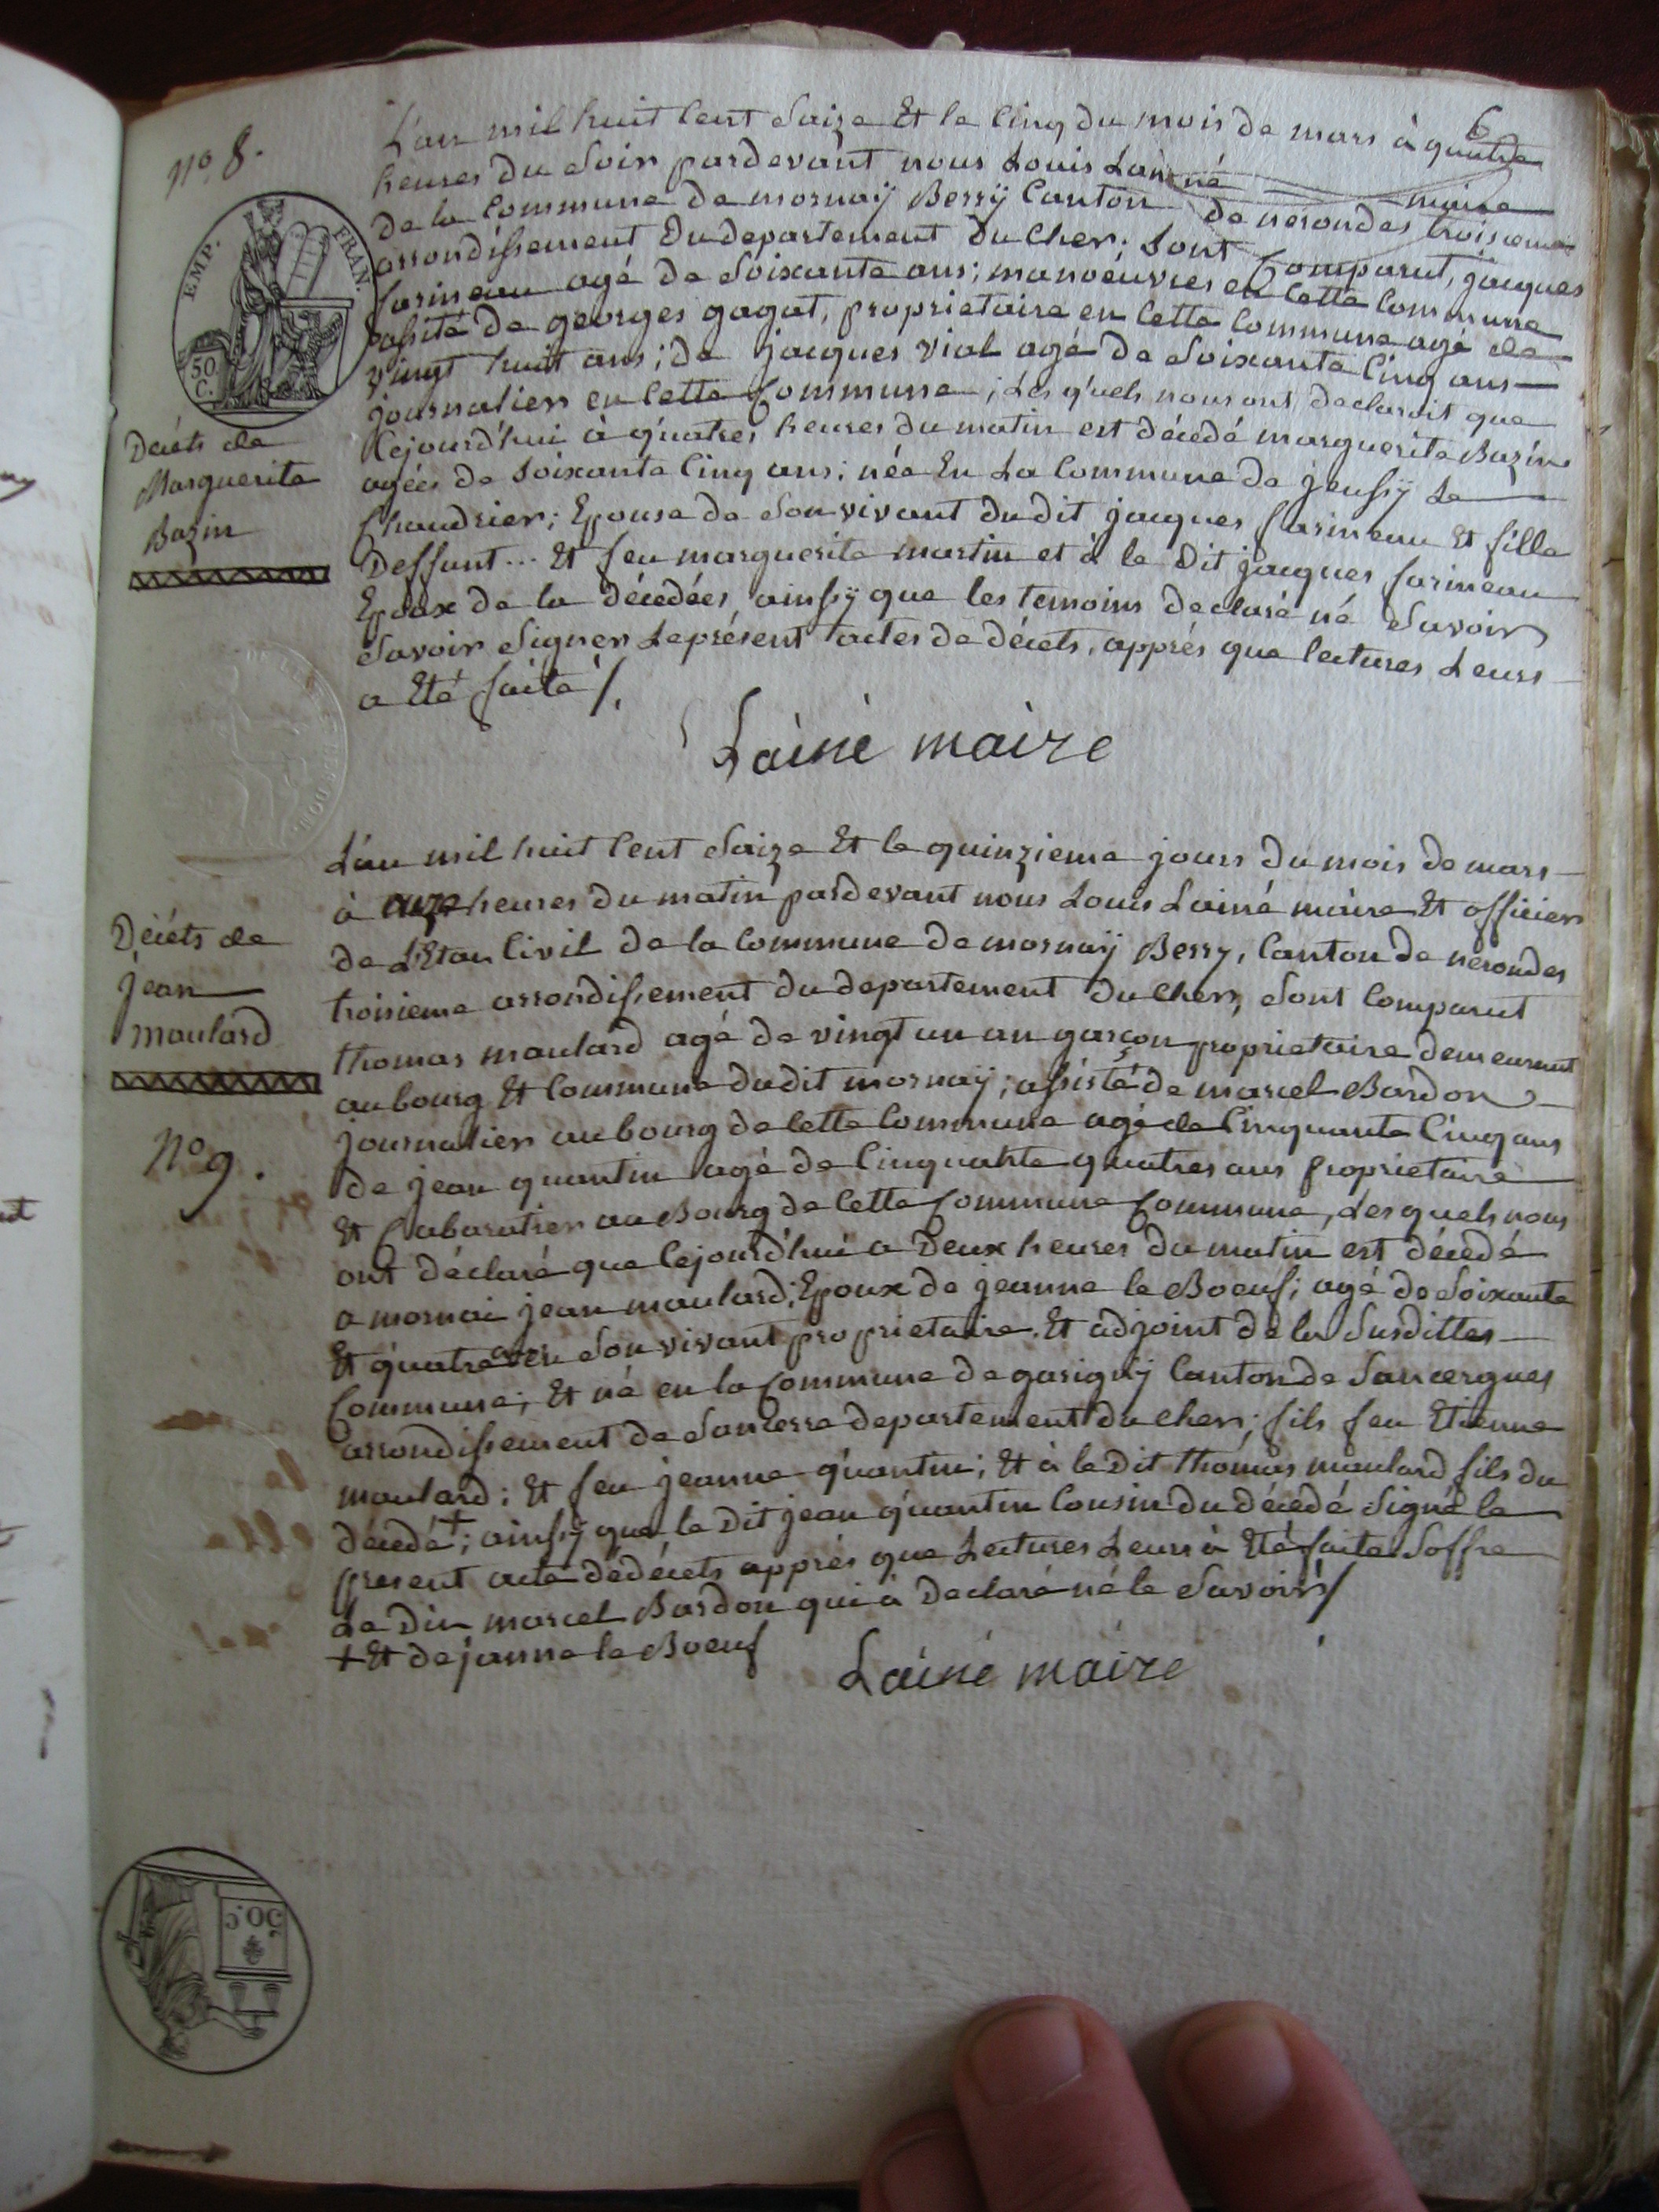 6
L'an mil huit Cent Saize Et le Cinq du mois de mars à quatre
heures du Soir pardevant nous Louis Lainné maire
de la Commune de mornaÿ Berrÿ Canton de nerondes troisieme
arrondissement Du departement Du Cher; Sont Comparut, jacques
farineau agé de Soixante ans; manoeuvres en Cette Commune
assité de georges gagat, proprietaire en Cette Commune agé de
vingt huit ans; de jacques vial agé De Soixante Cinq ans
journalier en Cette Commune; Les q'uels nous ont declaroit que
Cejourd'hui à q'uatres heures du matin est décédé marguerite Bazin
agées de Soixante Cinq ans; née En La Commune de jeussÿ Le
Chaudrier; Epouse de Son vivant Du dit jacques farineau Et fille
Deffunt... Et feu marguerite martin et à le Dit jacques farineau
Epoux De la décedées, ainssÿ que les temoins declaré né Savoir
Savoir Signer Le présent actes de décets, apprés que lectures Leurs
a Eté faite /.
Lainé maire
n.o 8.
EMP. FRAN.
50 C.
Decéts de
Marguerite
Bazin
L'an mil huit Cent Saize Et le quinzieme jours du mois de mars
à onze heures du matin pardevant nous Louis Lainé maire Et officier
de L'Etau Civil de la Commune de mornaÿ Berry, Canton de nerondes
troisieme arrondissement du departement du Cher, Sont Comparut
thomas maulard agé de vingt un an garçon proprietaire demeurant
au bourg Et Commune dudit mornaÿ; assisté de marcel Bardon
journalier au bourg de Cette Commune agé de Cinquante Cinq ans
de jean quantin agé de Cinquante quatres ans proprietaire
Et Cabaratier au Bourg de Cette Commune Commune, Les quels nous
ont déclaré que Cejourd'hui a Deux heures du matin est décedé
a mornai jean maulard; Epoux de jeanne le Boeuf; agé de Soixante
Et q'uatre ans en Son vivant proprietaire. Et adjoint de la Susdittes
Commune; Et né en la Commune de garignÿ Canton de Sancergues
arrondissement de Sancerre departement du Cher; fils feu Etienne
maulard; Et feu jeanne q'uantin; Et à le Dit thomas maulard fils du
décedé +; ainssÿ que le Dit jean q'uantin Cousin du décedé Signé le
present acte dédécets apprés que Lectures Leurs à Eté faite Soffre
Le Dit marcel Bardon qui à Declaré né le Savoir /
+ Et de janne le Boeuf
Lainé maire
Décéts de
jean
maulard
n.o 9.
50.C